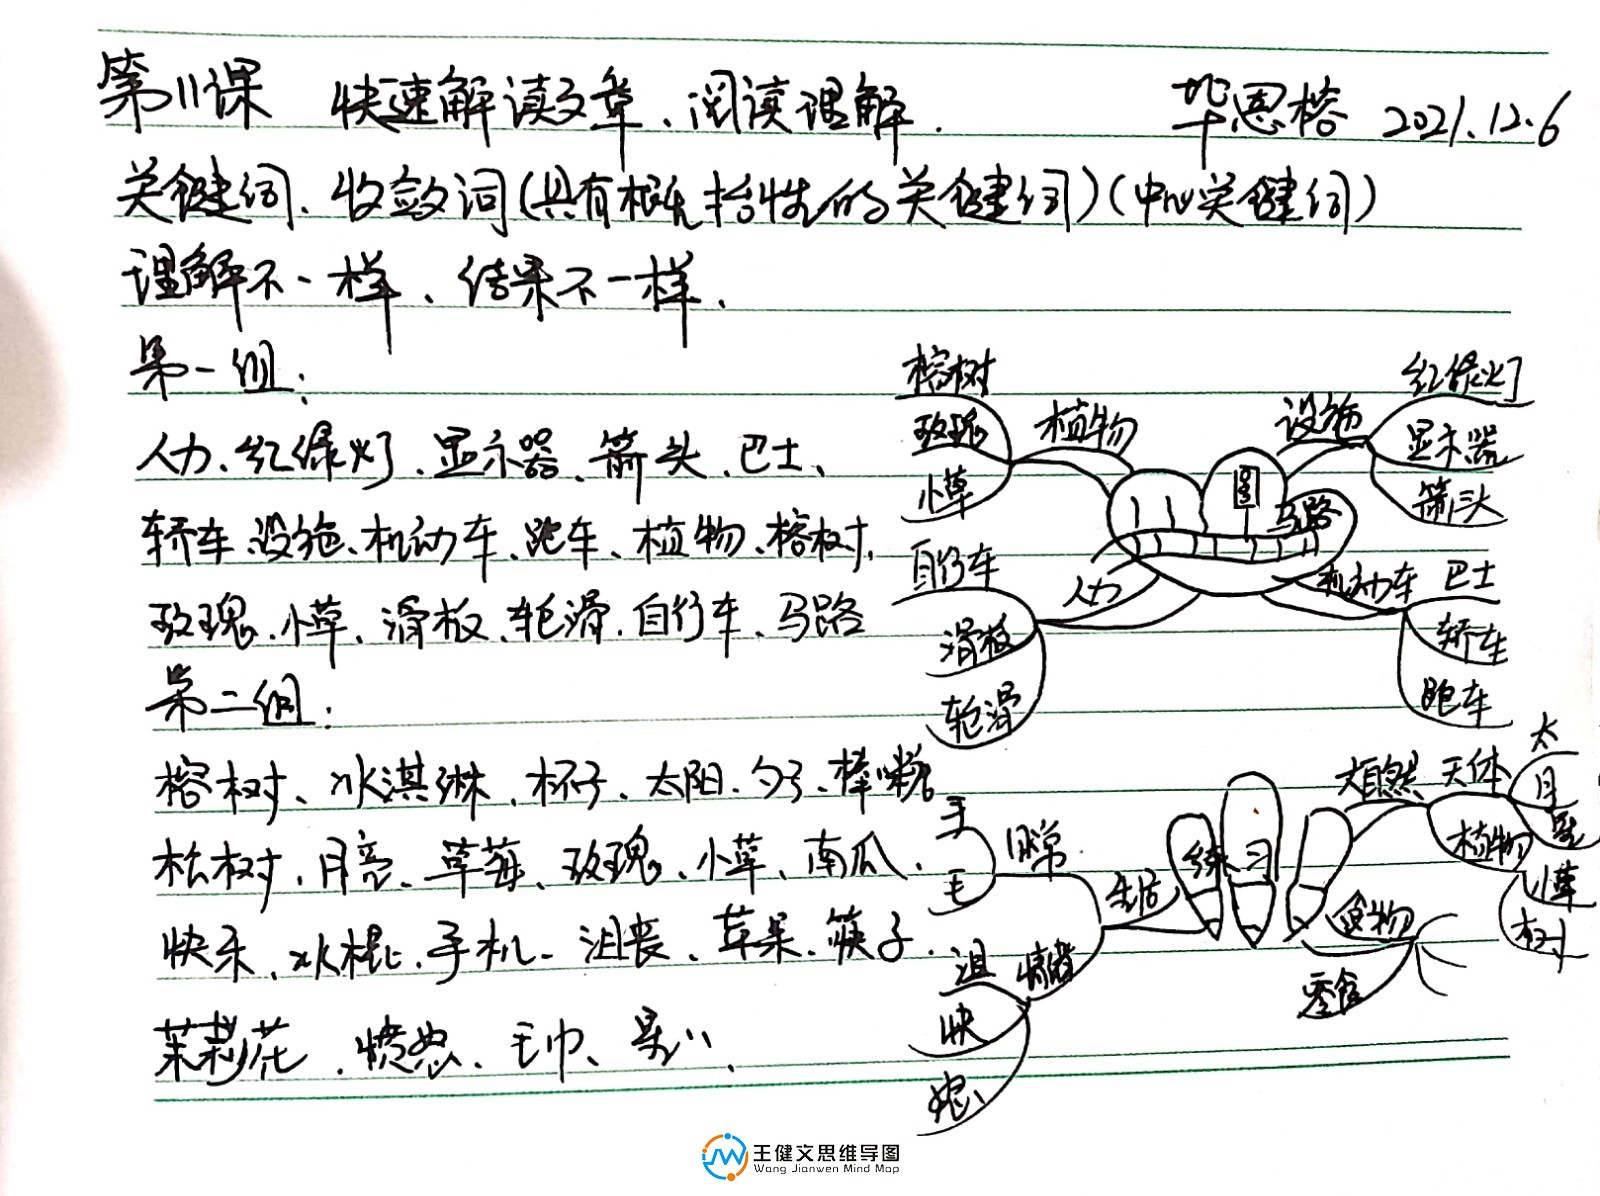 第11课 快速解读文章、阅读理解. 华恩榕 2021.12.6
关键词、收敛词(具有概括性的关键词)(中心关键词)
理解不一样、结果不一样.
第一组:
人力、红绿灯、显示器、箭头、巴士、
轿车、设施、机动车、跑车、植物、榕树、
玫瑰、小草、滑板、轮滑、自行车、马路
第二组:
榕树、冰淇淋、杯子、太阳、勺子、棒糖
松树、月亮、草莓、玫瑰、小草、南瓜、
快乐、冰棍、手机、沮丧、苹果、筷子、
茉莉花、愤怒、毛巾、星
马路
植物
榕树
玫瑰
小草
设施
红绿灯
显示器
箭头
人力
自行车
滑板
轮滑
机动车
巴士
轿车
跑车
练习
大自然
天体
太
月
星
植物
小草
树
食物
零食
生活
日常
手
毛
情绪
沮
快
怒
王健文思维导图
Wang Jianwen Mind Map